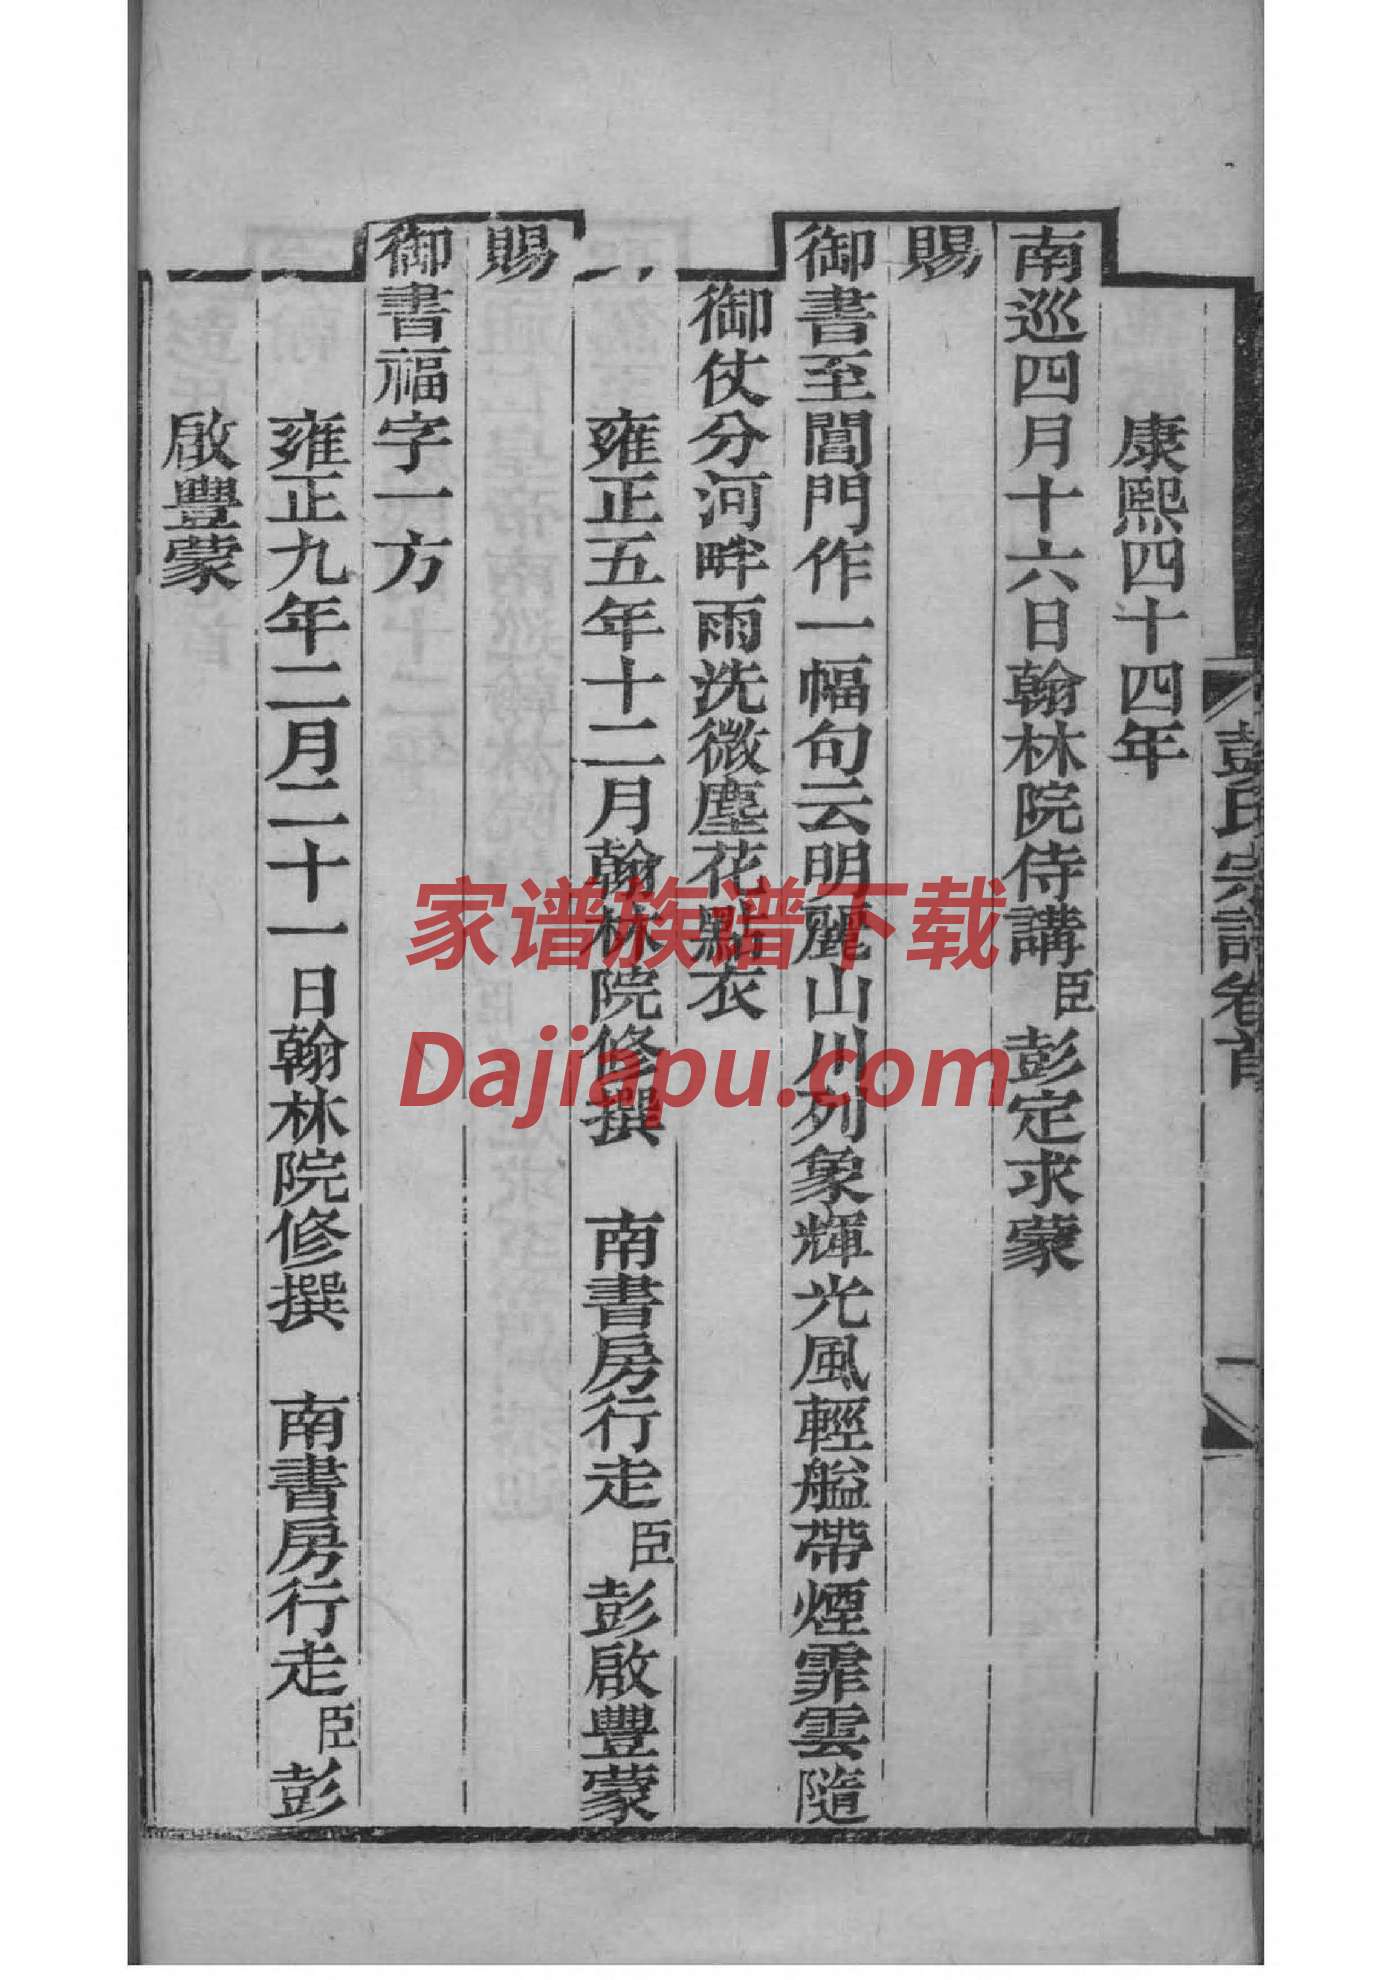 彭氏宗譜卷首
一
康熙四十四年
南巡四月十六日翰林院侍講臣彭定求蒙
賜
御書至閶門作一幅句云明麗山川列象輝光風輕艗帶煙霏雲隨
御仗分河畔雨洗微塵花點衣
雍正五年十二月翰林院修撰 南書房行走臣彭啟豐蒙
賜
御書福字一方
雍正九年二月二十一日翰林院修撰 南書房行走臣彭
啟豐蒙
家谱族谱下载
Dajiapu.com